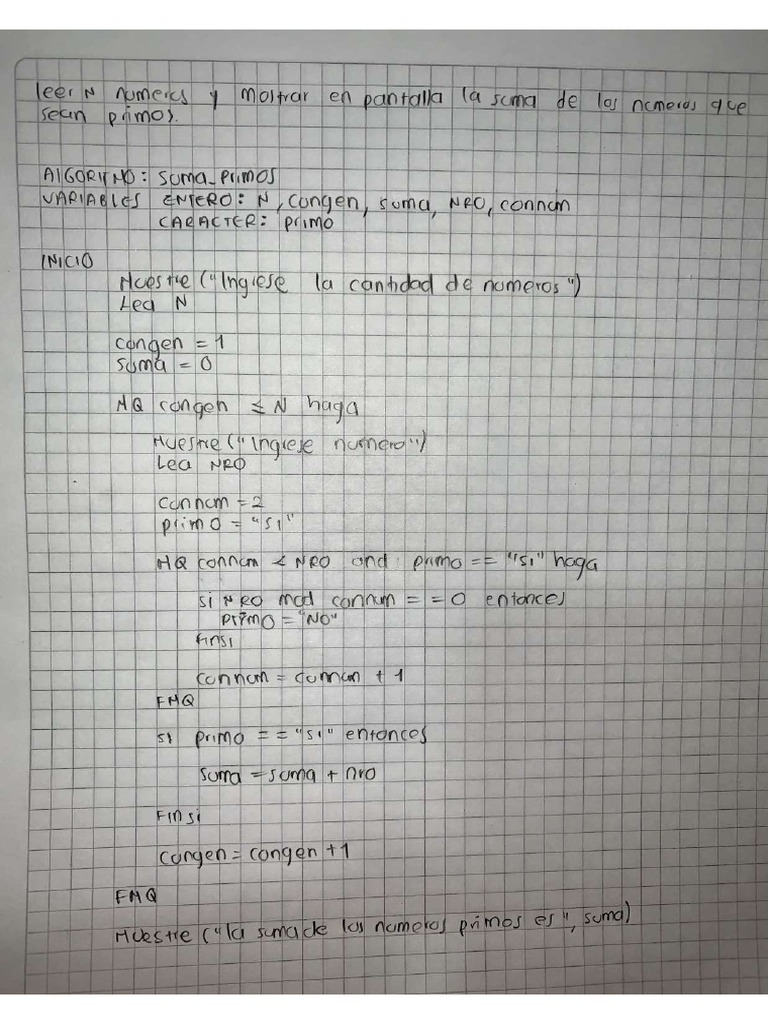 leer N numeros y mostrar en pantalla la suma de los numeros que
sean primos.
AlGORITMO: suma_primos
VARIABLES ENTERO: N, congen, suma, NRO, connum
CARACTER: primo
INICIO
Muestre ("Ingrese la cantidad de numeros")
Lea N
congen = 1
suma = 0
MQ congen ≤ N haga
Muestre ("Ingrese numero")
Lea NRO
connum = 2
primo = "si"
MQ connum < NRO and primo == "si" haga
si NRO mod connum == 0 entonces
primo = "NO"
Finsi
connum = connum + 1
FMQ
si primo == "si" entonces
suma = suma + nro
Finsi
congen = congen + 1
FMQ
Muestre ("la suma de los numeros primos es", suma)